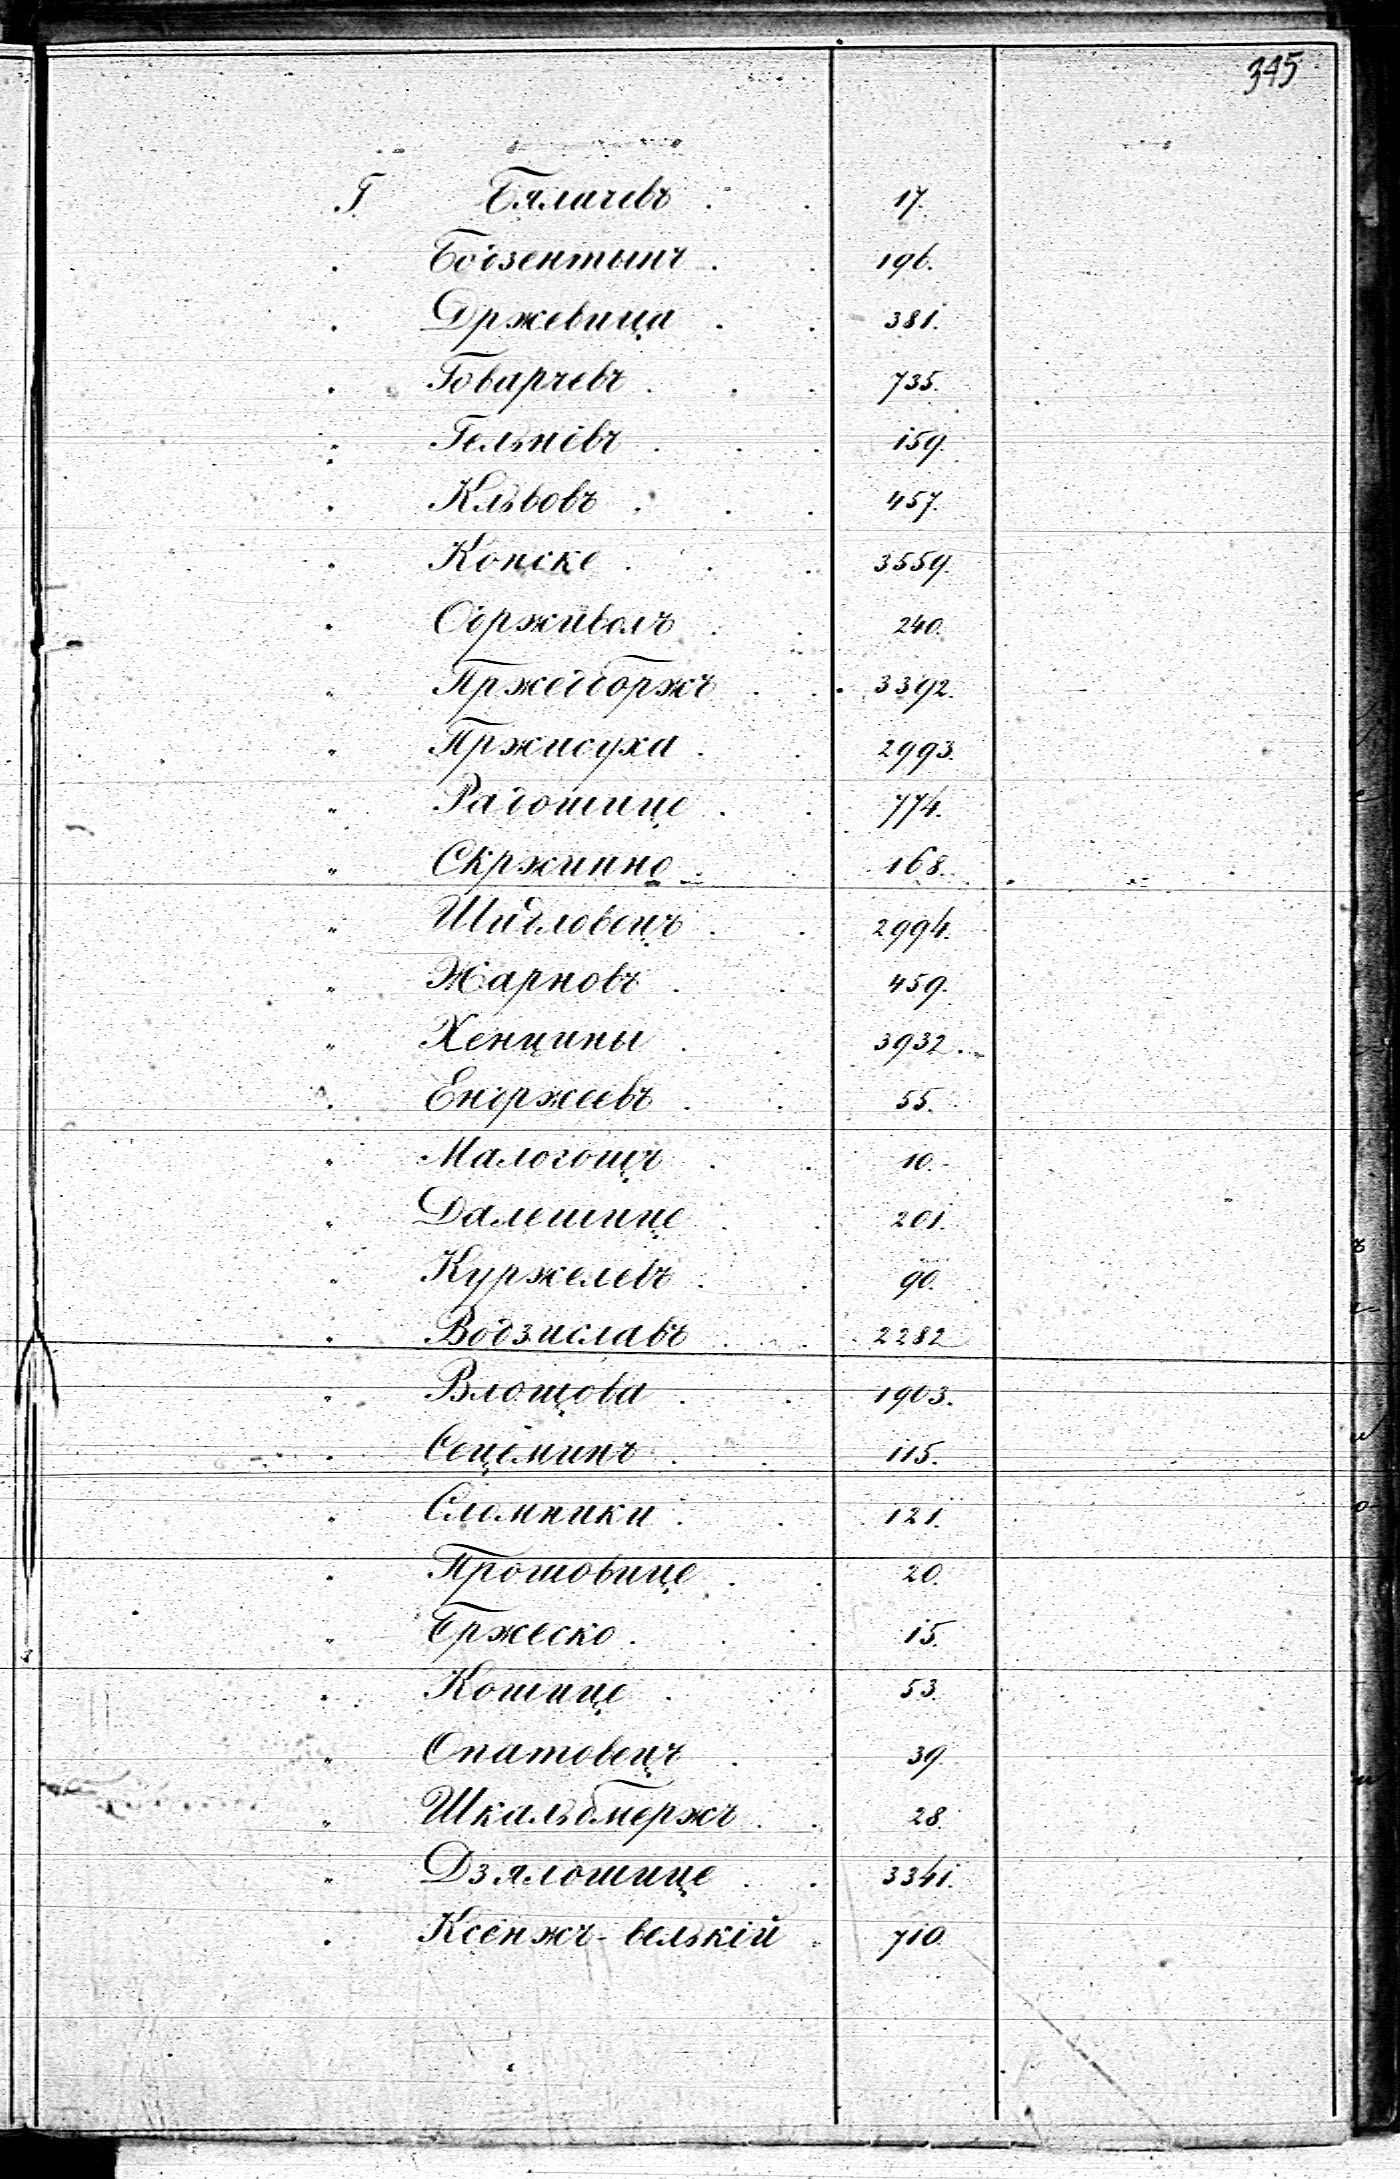 345
Г. Бялачевъ . . 17.
" Бодзентынъ . . 196.
" Држевица . . 381.
" Говарчевъ . . . 735.
" Гельнiвъ . . . 159.
" Кльвовъ . . . 457.
" Конске . . . 3559.
" Одрживолъ . . 240.
" Пржедборжъ . . 3392.
" Пржисуха . . 2993.
" Радошице . . 774.
" Скржинно . . 168.
" Шидловецъ . . 2994.
" Жарновъ . . 459.
" Хенцины . . 3932.
" Ендржеевъ . . 55.
" Малогощъ . . 10.
" Далешице . . 201.
" Куржелевъ . . 90.
" Водзиславъ . . 2282
" Влощова . . 1903.
" Сецеминъ . . 115.
" Сломники . . 121.
" Прошовице . . 20.
" Бржеско . . . 15.
" Кошице . . 53.
" Опатовецъ . . 39.
" Шкальбмержъ . . 28.
" Дзялошице . . 3341.
" Ксёнжъ-велькiй . 710.